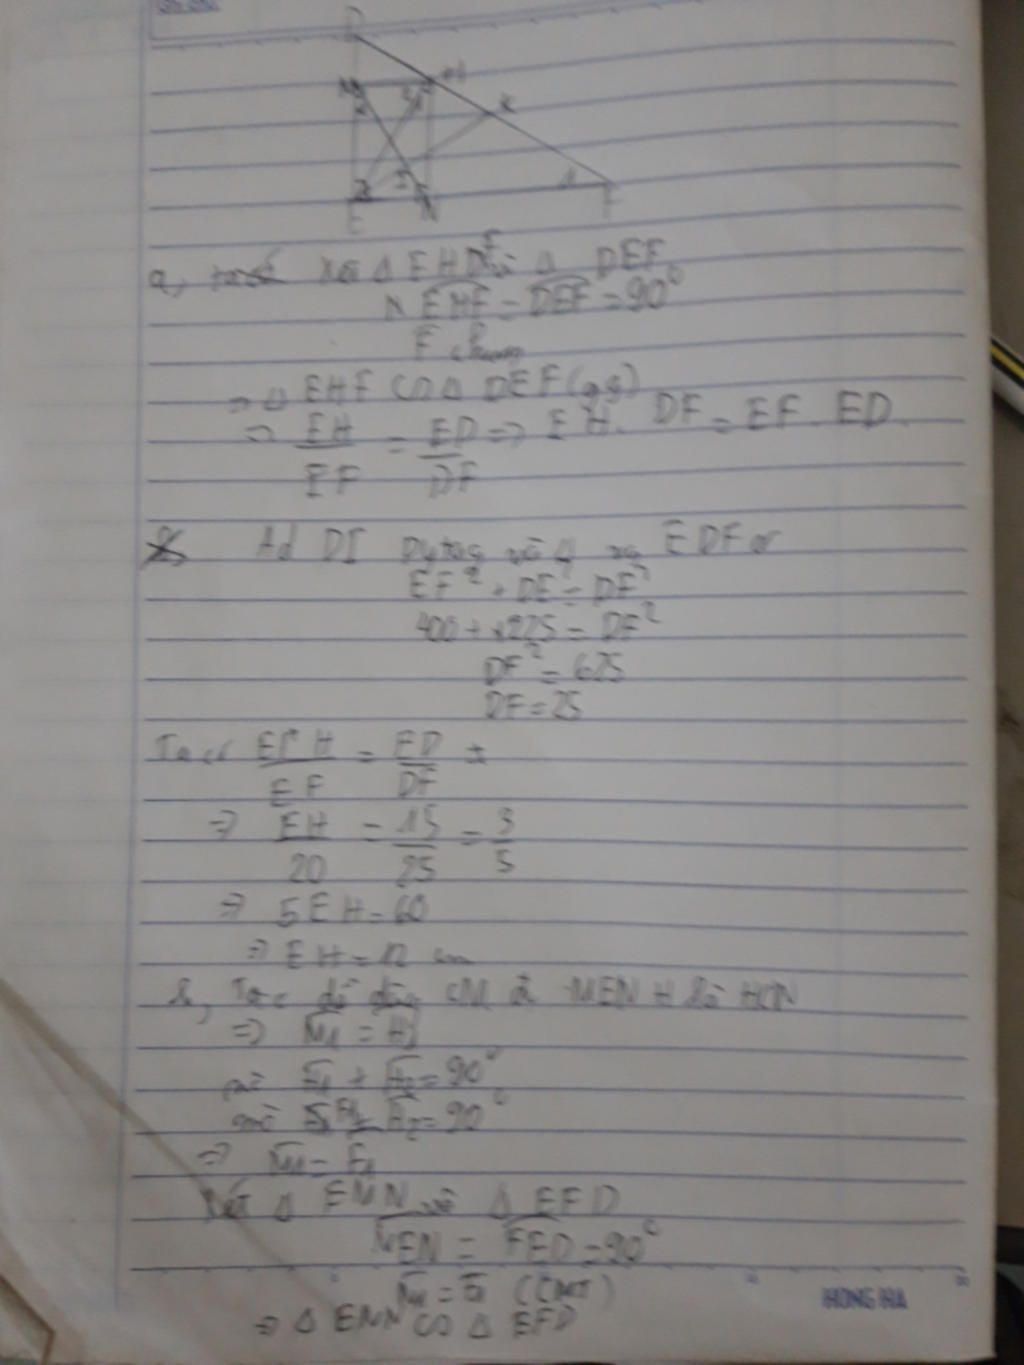 D
M H
K
I 1
E N F
a, Xét Δ EHF và Δ DEF
EHF = DEF = 90°
F chung
=> Δ EHF ∽ Δ DEF (gg)
=> EH/EF = ED/DF => EH. DF = EF. ED
Ad DI Pytag và Δ EDF
EF² + DE² = DF²
400 + 225 = DF²
DF² = 625
DF = 25
Ta có EH/EF = ED/DF
=> EH/20 = 15/25 = 3/5
=> 5EH = 60
=> EH = 12 cm
b, Ta c dễ dàng CM đc MENH là HCN
=> M1 = H1
90°
H2 = 90°
=> M1 = F1
Xét Δ EMN và Δ EFD
MEN = FED = 90°
M1 = F1 (CMT)
=> Δ EMN ∽ Δ EFD
HONG HA